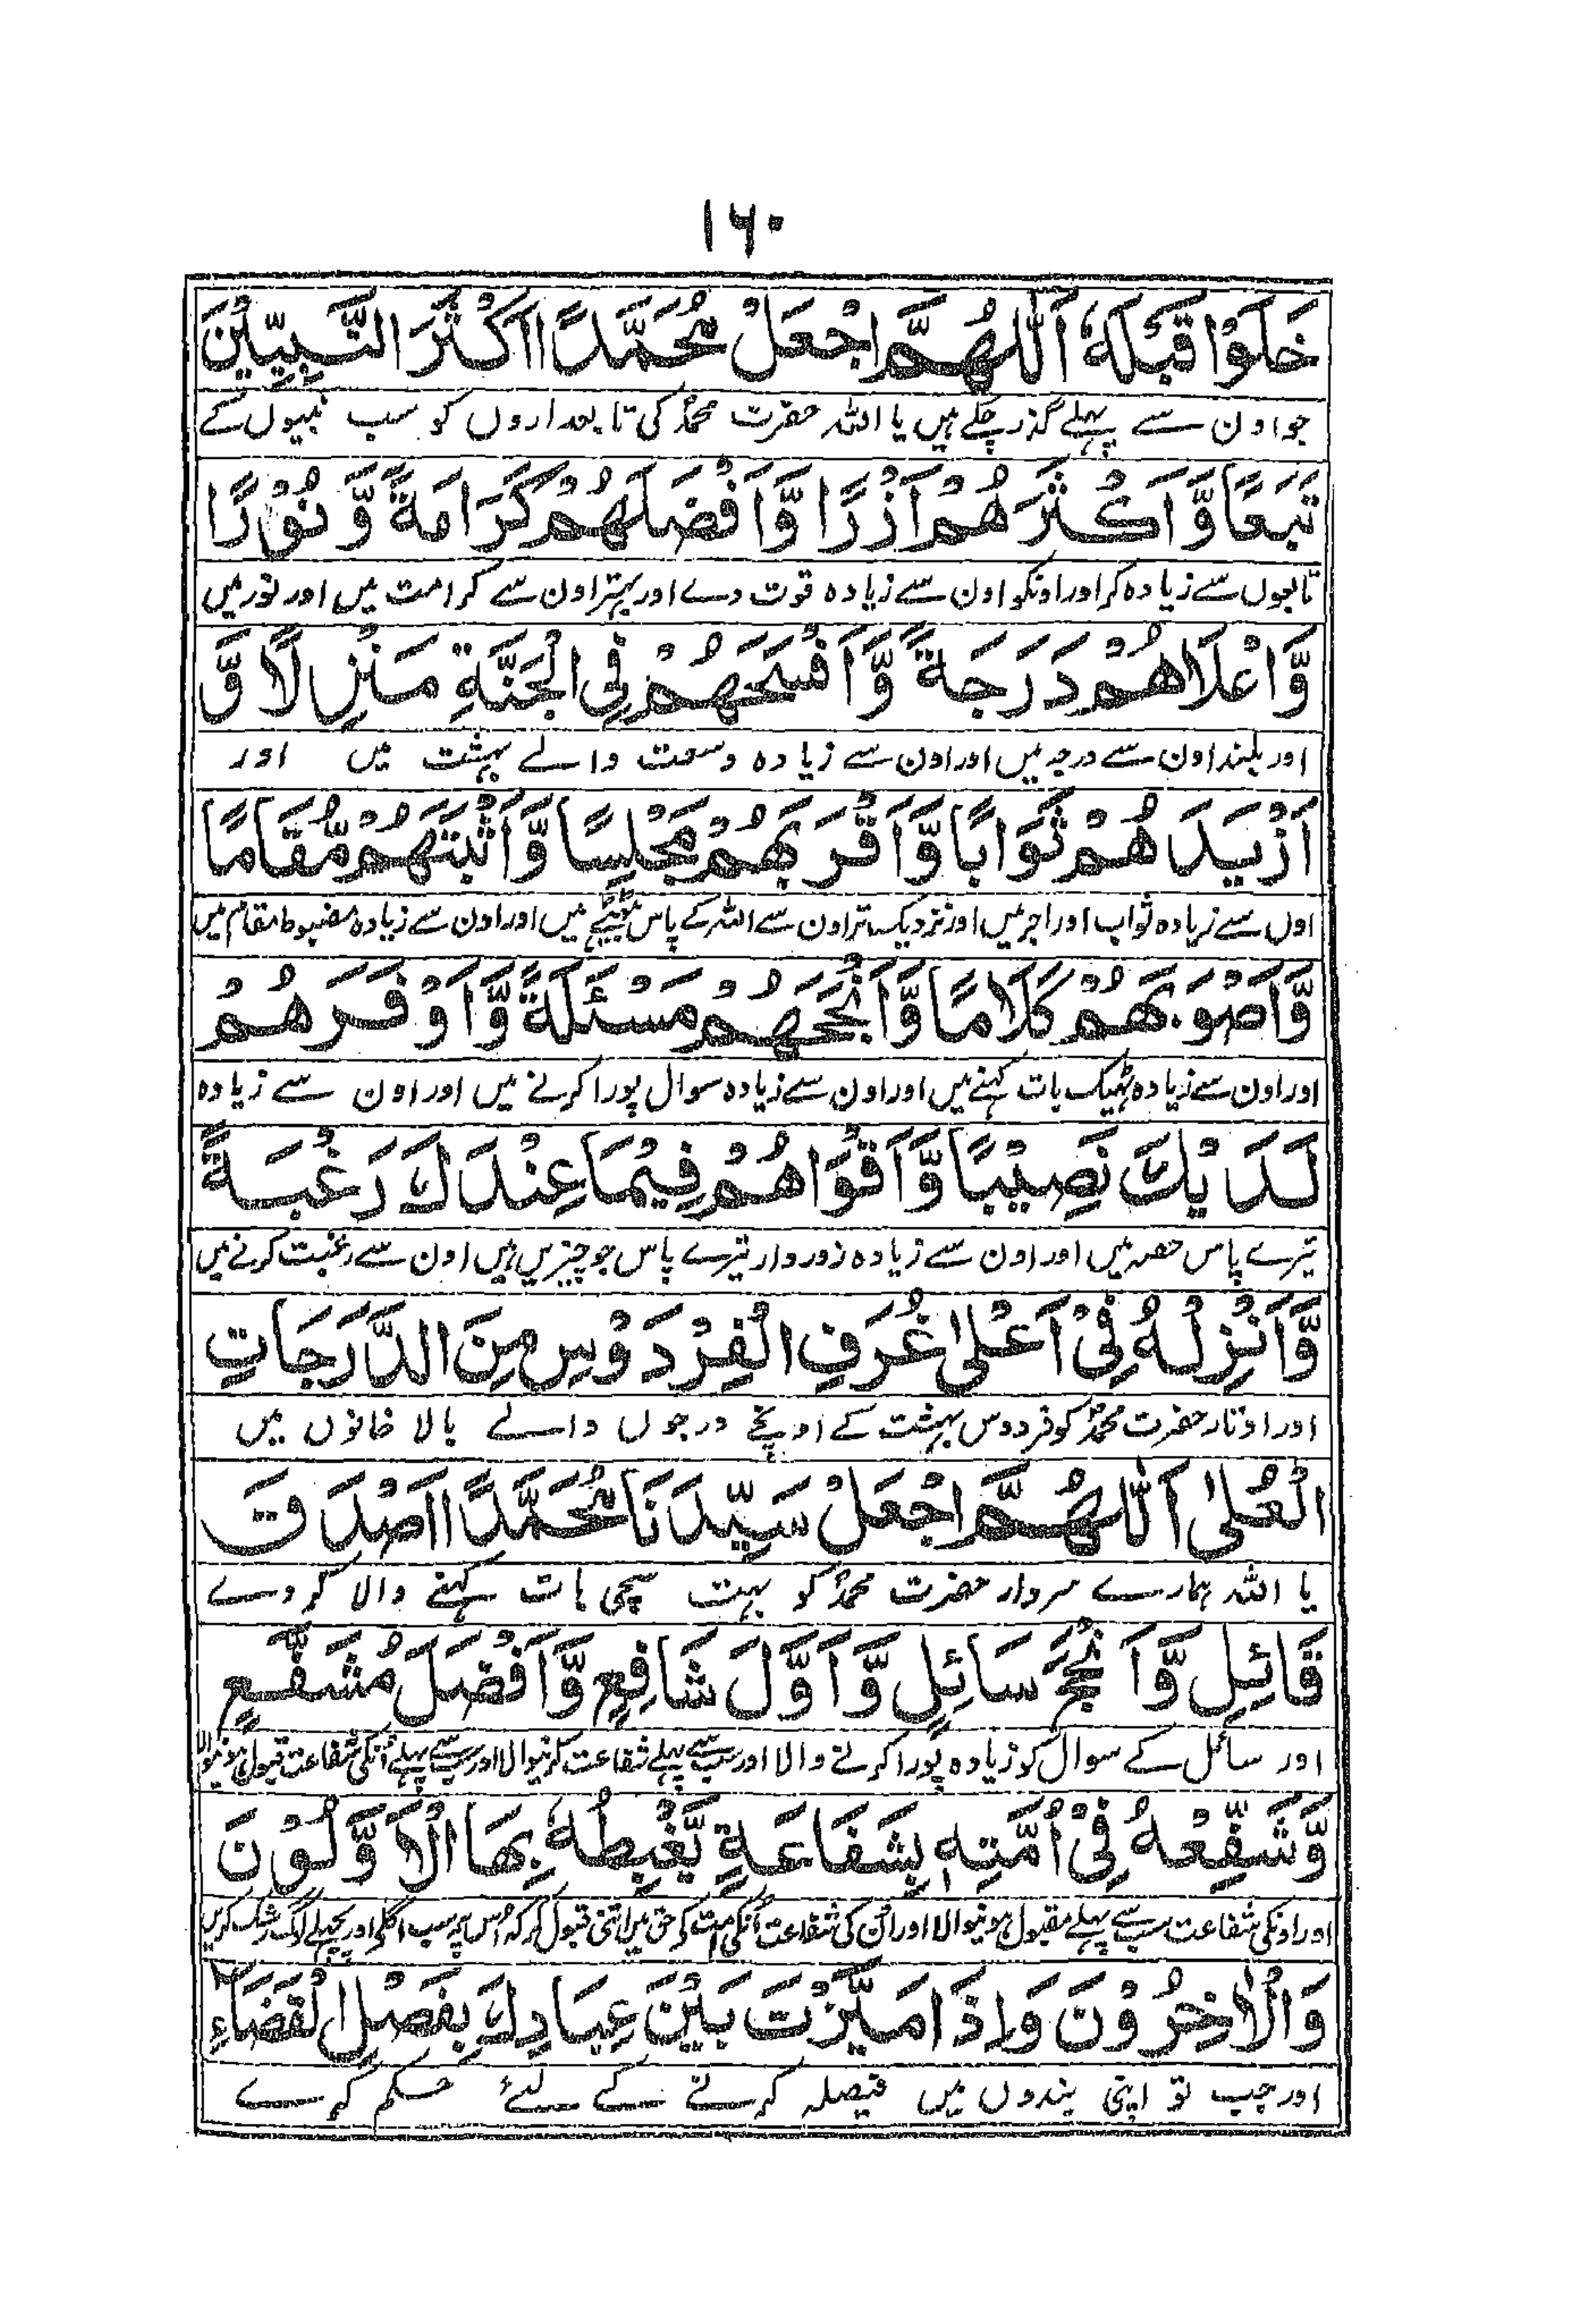 ۱۶۰
خَلَوْا قَبْلَهٗ اَللّٰهُمَّ اجْعَلْ مُحَمَّدًا اَكْثَرَ النَّبِيِّيْنَ
جو اون سے پہلے گذر چکے ہیں یا اللہ حضرت محمدؐ کی تابعداروں کو سب نبیوں کے
تَبَعًا وَّ اَكْثَرَهُمْ اَزْرًا وَّ اَفْضَلَهُمْ كَرَامَةً وَّ نُوْرًا
تابعوں سے زیادہ کر اور اونکو اون سے زیادہ قوت دے اور بہتر اون سے کرامت میں اور نور میں
وَّ اَعْلَاهُمْ دَرَجَةً وَّ اَفْسَحَهُمْ فِى الْجَنَّةِ مَنْزِلًا وَّ
اور بلند اون سے درجہ میں اور اون سے زیادہ وسعت والے بہشت میں اور
اَزْيَدَهُمْ ثَوَابًا وَّ اَقْرَبَهُمْ مَجْلِسًا وَّ اَثْبَتَهُمْ مُّقَامًا
اون سے زیادہ ثواب اور اجر میں اور نزدیک تر اون سے اللہ کے پاس بیٹھنے میں اور اون سے زیادہ مضبوط مقام میں
وَّ اَصْوَبَهُمْ كَلَامًا وَّ اَنْجَحَهُمْ مَسْئَلَةً وَّ اَوْفَرَهُمْ
اور اون سے زیادہ ٹھیک بات کہنے میں اور اون سے زیادہ سوال پورا کرنے میں اور اون سے زیادہ
لَدَيْكَ نَصِيْبًا وَّ اَقْوَاهُمْ فِيْمَا عِنْدَكَ رَغْبَةً
تیرے پاس حصہ میں اور اون سے زیادہ زور دار تیرے پاس جو چیزیں ہیں اون سے رغبت کرنے میں
وَّ اَنْزِلْهُ فِىْ اَعْلٰى غُرَفِ الْفِرْدَوْسِ مِنَ الدَّرَجَاتِ
اور اوتار حضرت محمدؐ کو فردوس بہشت کے اونچے درجوں والے بالا خانوں میں
الْعُلٰى اَللّٰهُمَّ اجْعَلْ سَيِّدَنَا مُحَمَّدًا اَصْدَقَ
یا اللہ ہمارے سردار حضرت محمدؐ کو بہت سچی بات کہنے والا کر دے
قَائِلٍ وَّ اَنْجَحَ سَائِلٍ وَّ اَوَّلَ شَافِعٍ وَّ اَفْضَلَ مُشَفَّعٍ
اور سائل کے سوال کو زیادہ پورا کرنے والا اور سب سے پہلے شفاعت کرنیوالا اور سب سے پہلے اُنکی شفاعت قبول ہونیوالا
وَّ شَفِّعْهُ فِىْ اُمَّتِهٖ بِشَفَاعَةٍ يَّغْبِطُهٗ بِهَا الْاَوَّلُوْنَ
اور اونکی شفاعت سب سے پہلے مقبول ہونیوالا اور اُن کی شفاعت اُنکی امت کے حق میں اتنی قبول کر کہ اُس پہ سب اگلے اور پچھلے لوگ رشک کریں
وَالْاٰخِرُوْنَ وَاِذَا مَيَّزْتَ بَيْنَ عِبَادِكَ بِفَصْلِ الْقَضَاءِ
اور جب تو اپنی بندوں میں فیصلہ کرنے کے لئے حکم کرے